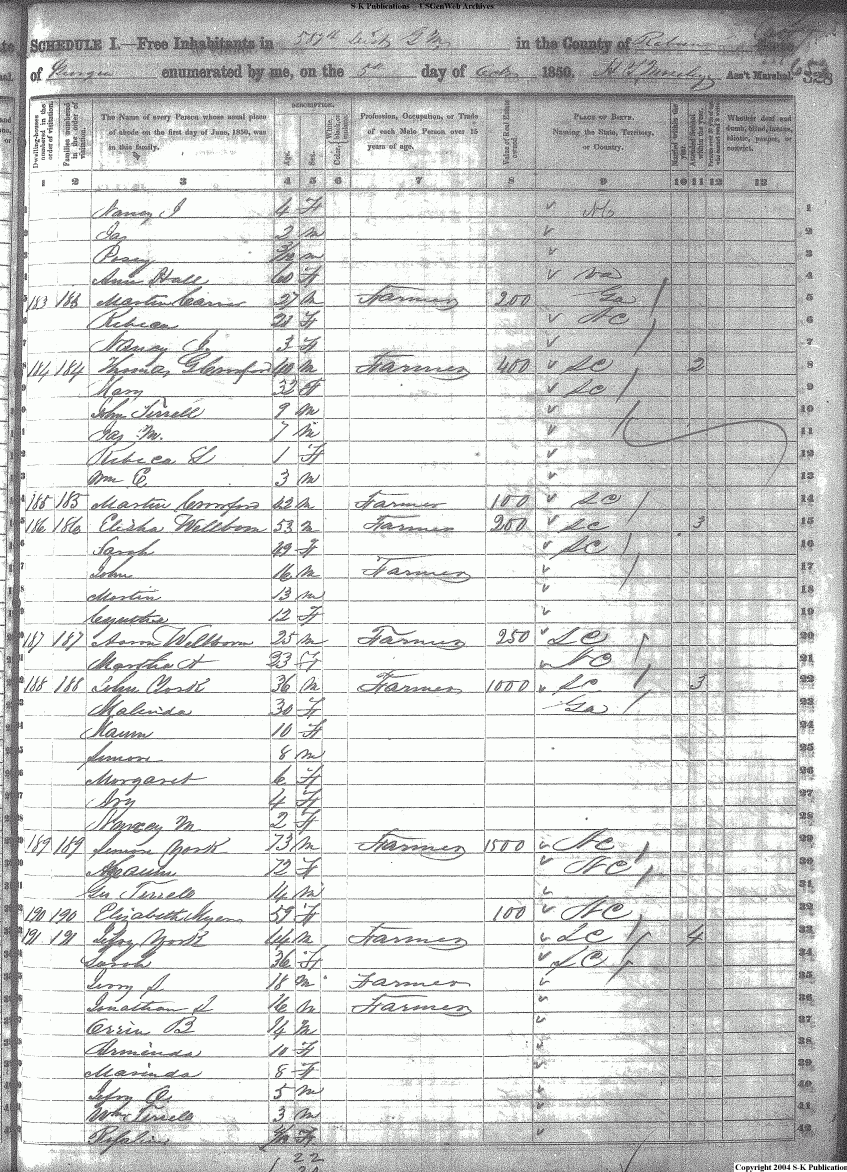 S-K Publications - USGenWeb Archives
SCHEDULE I.—Free Inhabitants in in the County of Rabun State
of Georgia enumerated by me, on the 5th day of 1850. Ass't Marshal. 328
Dwelling-houses numbered in the order of visitation. Families numbered in the order of visitation. The Name of every Person whose usual place of abode on the first day of June, 1850, was in this family. DESCRIPTION. Age. Sex. Color, White, black, or mulatto. Profession, Occupation, or Trade of each Male Person over 15 years of age. Value of Real Estate owned. PLACE OF BIRTH. Naming the State, Territory, or Country. Married within the year. Attended School within the year. Whether deaf and dumb, blind, insane, idiotic, pauper, or convict.
1 2 3 4 5 6 7 8 9 10 11 12 13
Nancy J 4 F 1
Jas 2 M 2
Posey M 3
Ann Hall 60 F Va 4
183 183 Martin 27 M Farmer 200 Ga 5
Rebeca 23 F NC 6
Nancy J. 3 F 7
184 184 Thomas G Crawford 40 M Farmer 400 SC 2 8
Mary 32 F SC 9
John Terrell 9 M 10
Jas M. 7 M 11
Rebeca L 1 F 12
Wm C. 3 M 13
185 185 Martin Crawford 22 M Farmer 100 SC 14
186 186 Elisha Wellborn 53 M Farmer 200 SC 3 15
Sarah 49 F SC 16
John 16 M Farmer 17
Martin 13 M 18
Cynthia 12 F 19
187 187 Aaron Wellborn 25 M Farmer 250 SC 20
Martha A 23 F NC 21
188 188 John York 36 M Farmer 1000 SC 3 22
Malinda 30 F Ga 23
Naum 10 F 24
Simon 8 M 25
Margaret 6 F 26
Ivy 4 F 27
Nancy M 2 F 28
189 189 Simon York 73 M Farmer 1500 NC 29
72 F NC 30
Terrell 14 M 31
190 190 Elizabeth 59 F 100 NC 32
191 191 York 44 M Farmer SC 4 33
Sarah 36 F SC 34
Jerry S 18 M Farmer 35
Jonathan S 16 M Farmer 36
B 14 M 37
Arminda 10 F 38
Marinda 8 F 39
O. 5 M 40
Wm Terrell 3 M 41
F 42
22
Copyright 2004 S-K Publications